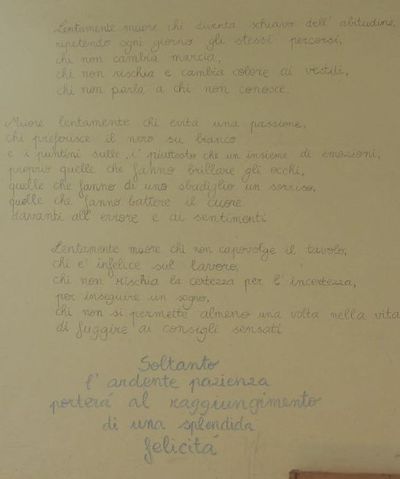 Lentamente muore chi diventa schiavo dell' abitudine,
ripetendo ogni giorno gli stessi percorsi,
chi non cambia marcia,
chi non rischia e cambia colore ai vestiti,
chi non parla a chi non conosce.
Muore lentamente chi evita una passione,
chi preferisce il nero su bianco
e i puntini sulle "i" piuttosto che un insieme di emozioni,
proprio quelle che fanno brillare gli occhi,
quelle che fanno di uno sbadiglio un sorriso,
quelle che fanno battere il cuore
davanti all' errore e ai sentimenti
Lentamente muore chi non capovolge il tavolo,
chi e' infelice sul lavoro,
chi non rischia la certezza per l' incertezza,
per inseguire un sogno,
chi non si permette almeno una volta nella vita
di fuggire ai consigli sensati
Soltanto
l' ardente pazienza
porterá al raggiungimento
di una splendida
felicitá